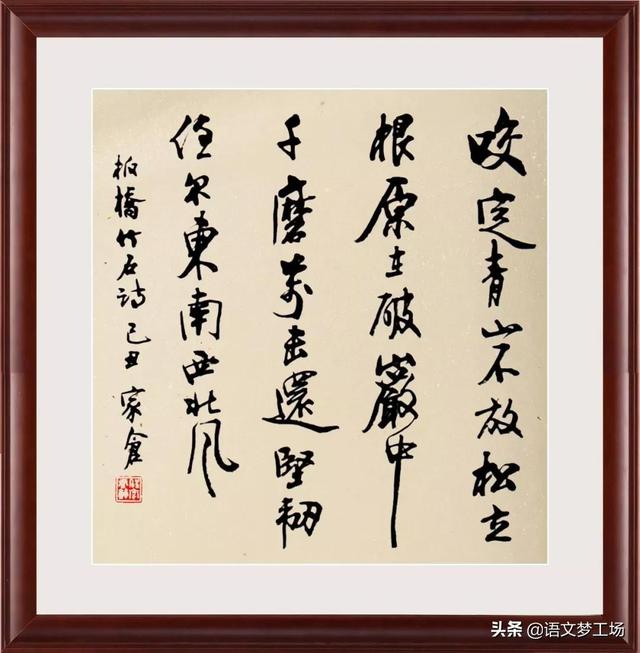 咬定青山不放松立
根原在破巖中
千磨萬击還堅韧
任尔東南西北风
板橋竹石诗 己丑 家倉
头条 @语文梦工场